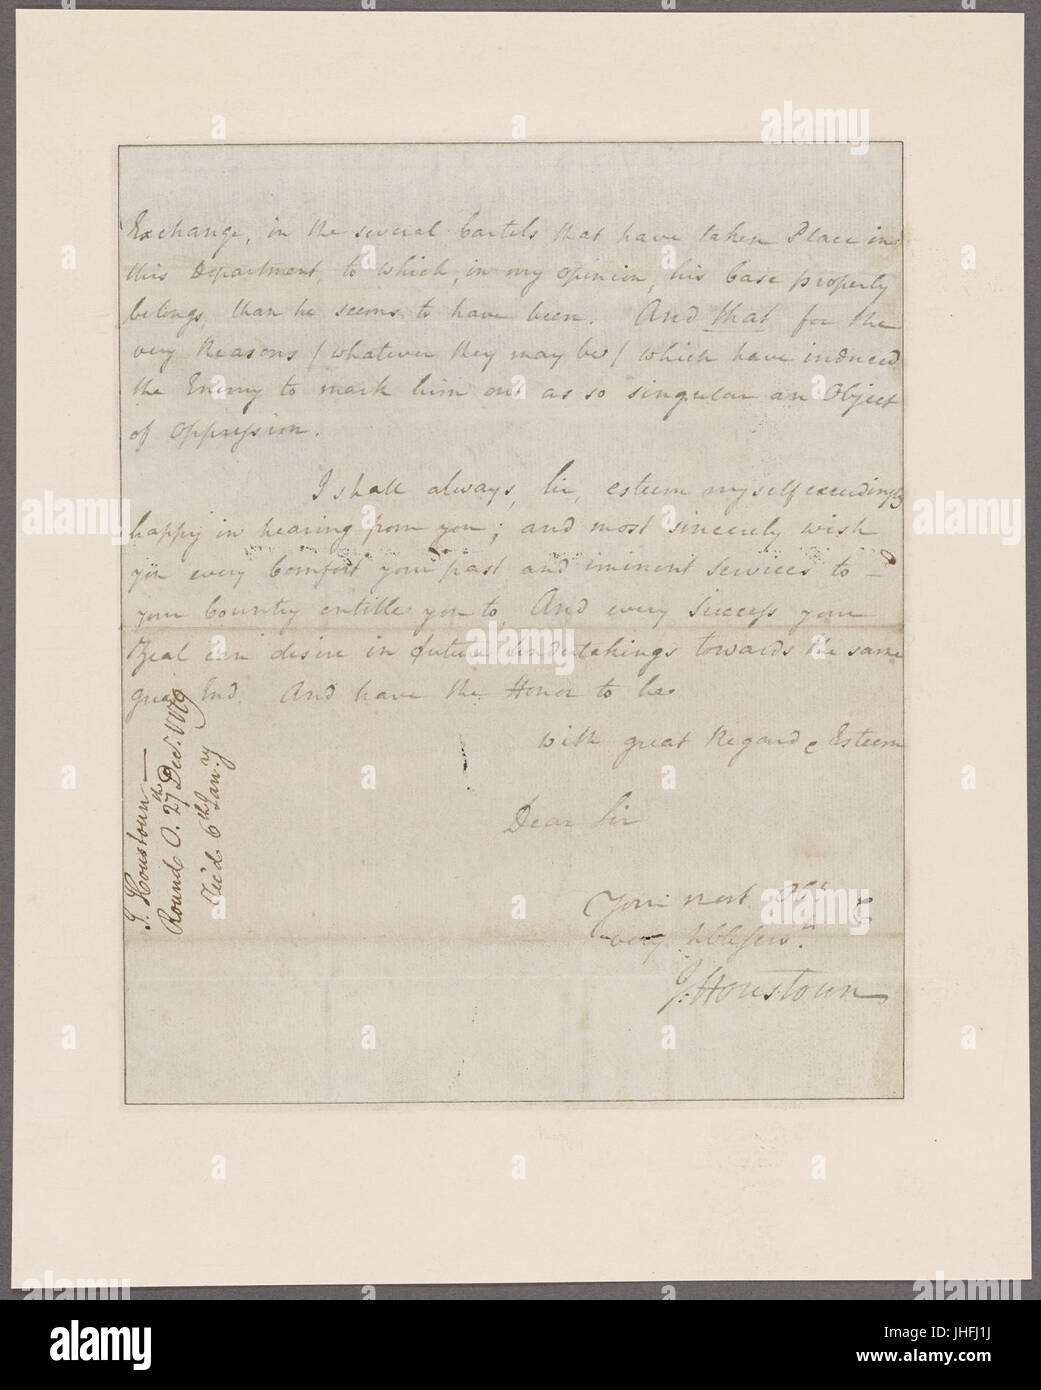 Exchange, in the several Cartels that have taken Place in
this Department, to which, in my opinion, his Case properly
belongs, than he seems to have been. And that for the
very Reasons / whatever they may be / which have induced
the Enemy to mark him out as so singular an Object
of Oppression.
I shall always, Sir, esteem myself exceedingly
happy in hearing from you; and most sincerely wish
you every Comfort your past and iminent Services to
your Country entitles you to, And every Success your
Zeal can desire in future Undertakings towards the same
great End. And have the Honor to be
With great Regard & Esteem
Dear Sir
Your most Obt &
very hble Servt
J. Houstoun
J. Houstoun —
Round O. 27th Decr. 1779
Rec'd 6th Jan.y
alamy
a
alamy stock photo
alamy
Image ID: JHFJ1J
www.alamy.com